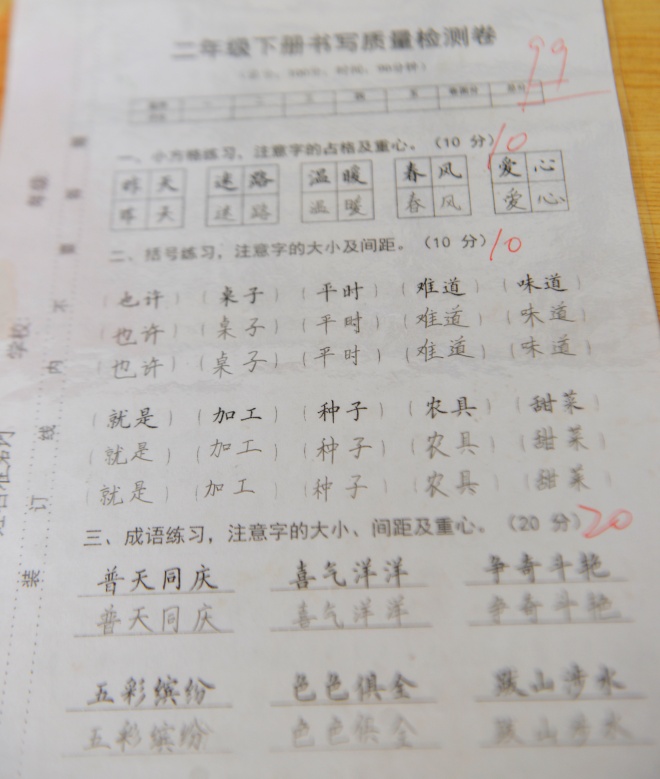 二年级下册书写质量检测卷
99
一、小方格练习，注意字的占格及重心。（10 分） 10
昨天 迷路 温暖 春风 爱心
昨天 迷路 温暖 春风 爱心
二、括号练习，注意字的大小及间距。（10 分） 10
（也许）（桌子）（平时）（难道）（味道）
（也许）（桌子）（平时）（难道）（味道）
（也许）（桌子）（平时）（难道）（味道）
（就是）（加工）（种子）（农具）（甜菜）
（就是）（加工）（种子）（农具）（甜菜）
（就是）（加工）（种子）（农具）（甜菜）
三、成语练习，注意字的大小、间距及重心。（20 分） 20
普天同庆 喜气洋洋 争奇斗艳
普天同庆 喜气洋洋 争奇斗艳
五彩缤纷 色色俱全 跋山涉水
五彩缤纷 色色俱全 跋山涉水
学校
装 订 线 内 不 要 答 题